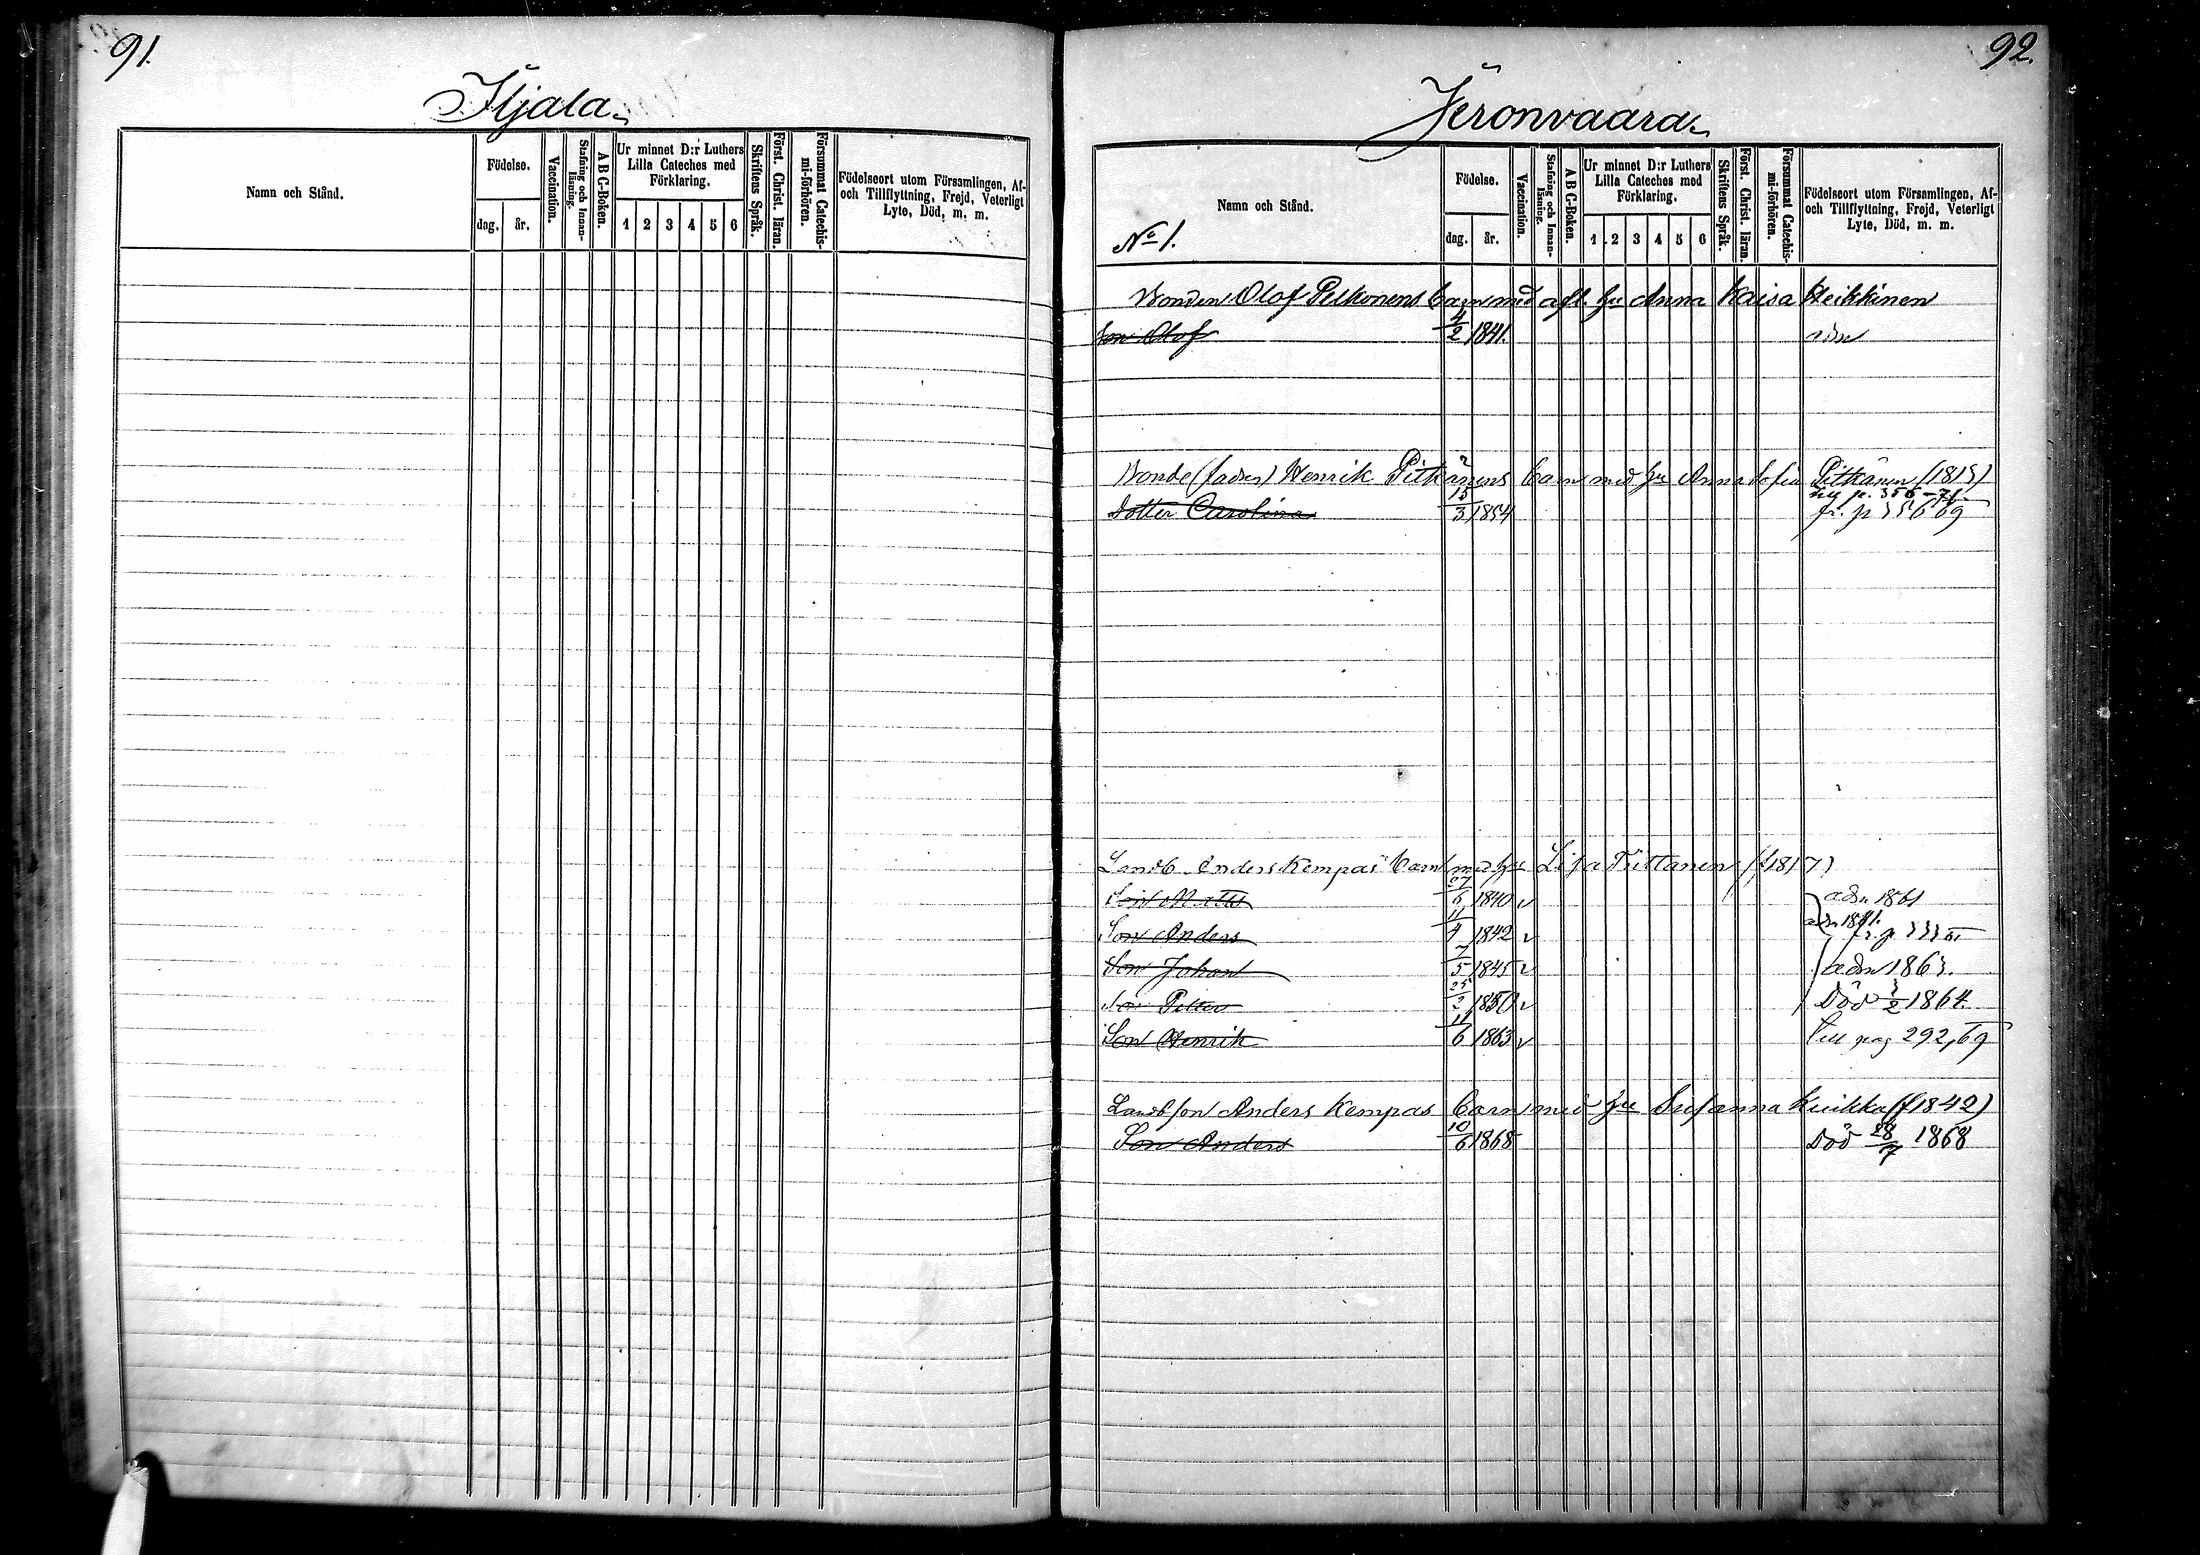 91.
Kjala.
Namn och Stånd.
Födelse.
dag. år.
Vaccination.
Stafning och Innan-läsning.
A B C-Boken.
Ur minnet D:r Luthers
Lilla Cateches med
Förklaring.
1 2 3 4 5 6
Skriftens Språk.
Först. Christ. läran.
Försummat Catechis-mi-förhören.
Födelseort utom Församlingen, Af-
och Tillflyttning, Frejd, Veterligt
Lyte, Död, m. m.
92.
Jeronvaara.
Namn och Stånd.
No 1.
Födelse.
dag. år.
Vaccination.
Stafning och Innan-läsning.
A B C-Boken.
Ur minnet D:r Luthers
Lilla Cateches med
Förklaring.
1 2 3 4 5 6
Skriftens Språk.
Först. Christ. läran.
Försummat Catechis-mi-förhören.
Födelseort utom Församlingen, Af-
och Tillflyttning, Frejd, Veterligt
Lyte, Död, m. m.
Bonden Olof Pelkonens barn med afl. hu Anna Kaisa Heikkinen
Son Olof 4/2 1841. adm
Bonde (fadren) Henrik Pitkänens barn med hu Anna Sofia Pitkänen (1813)
till p. 356-71.
Dotter Carolina 15/3 1854 fr. p 356 69
Landb. Anders Kempas barn med hu Lisa Tiittanen (f 1817)
Son Matts 27/6 1840 v adm 1861
adm 1861.
Son Anders 11/4 1842 v fr. p 333 III
Son Johan 7/5 1845 v adm 1863.
Son Petter 25/2 1850 v Död 3/2 1864.
Son Henrik 11/6 1863 v till pag 292, 69
Landb son Anders Kempas barn med hu Susanna Kuikka (f 1842)
Son Anders 10/6 1868 Död 28/7 1868